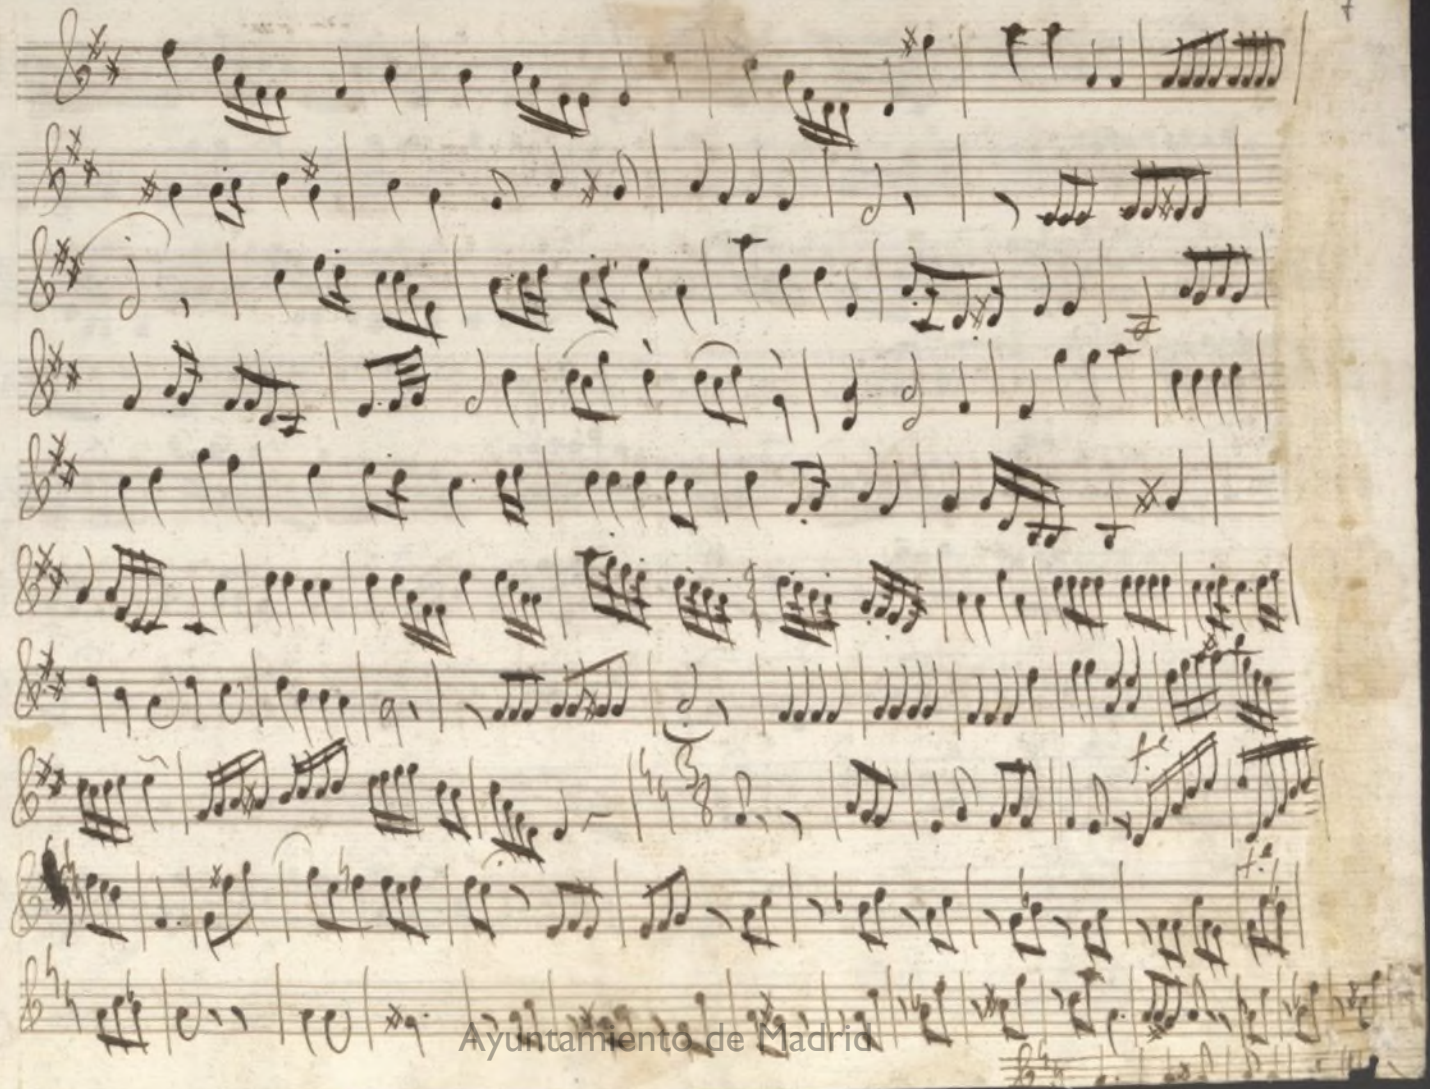 7
3
8
f:
f:
Ayuntamiento de Madrid